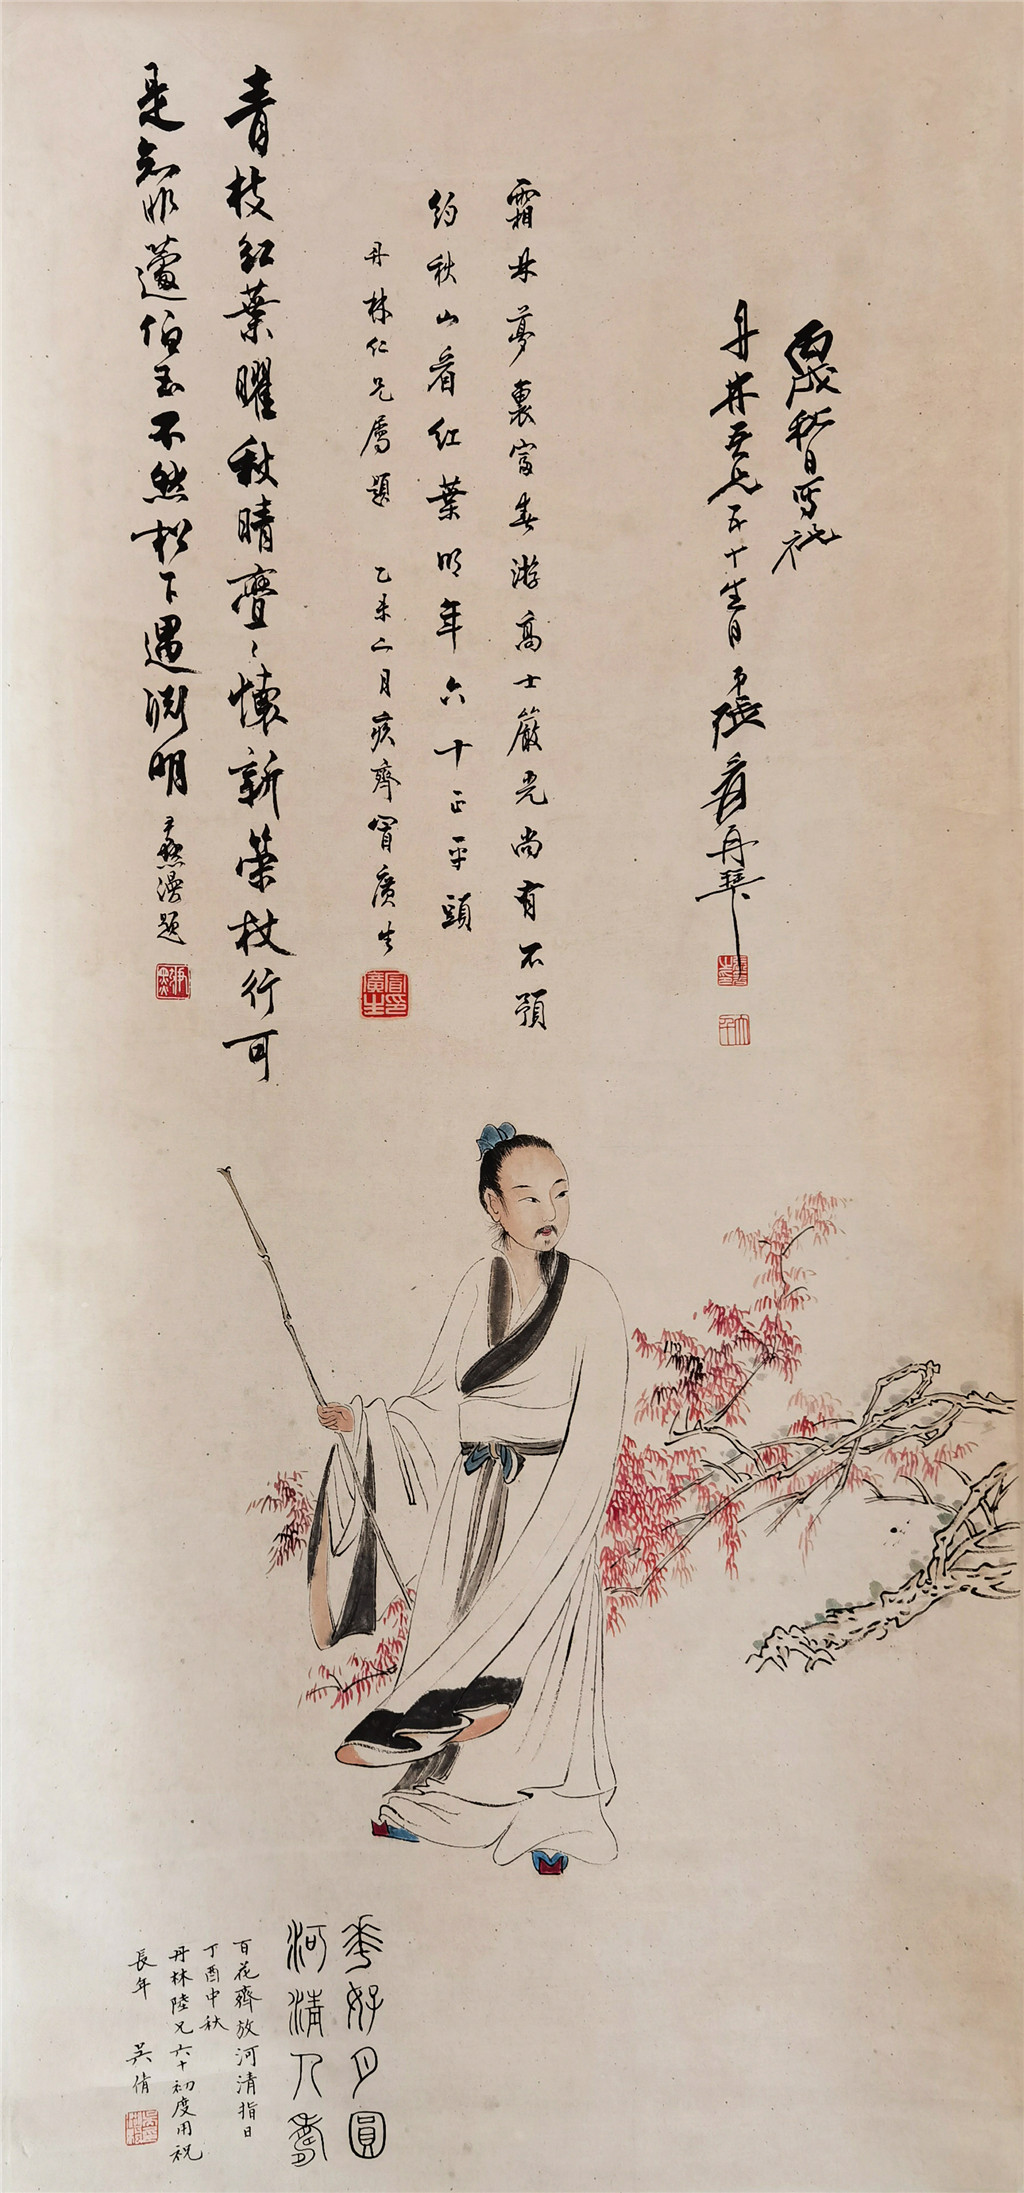 丙戌秋日寫祝
丹林吾兄五十生日 弟張爰再拜
霜林夢裏富春游高士嚴光尚有不預
約秋山看紅葉明年六十正平頭
丹林仁兄屬題 乙未二月疚齊冒廣生
冒廣生印
青枝紅葉曜秋晴亹〻懷新策杖行可
是知非蘧伯玉不然松下遇淵明
默漫題
華好月圓
河清人壽
百花齊放河清指日
丁酉中秋
丹林陸兄六十初度用祝
長年 吳倩